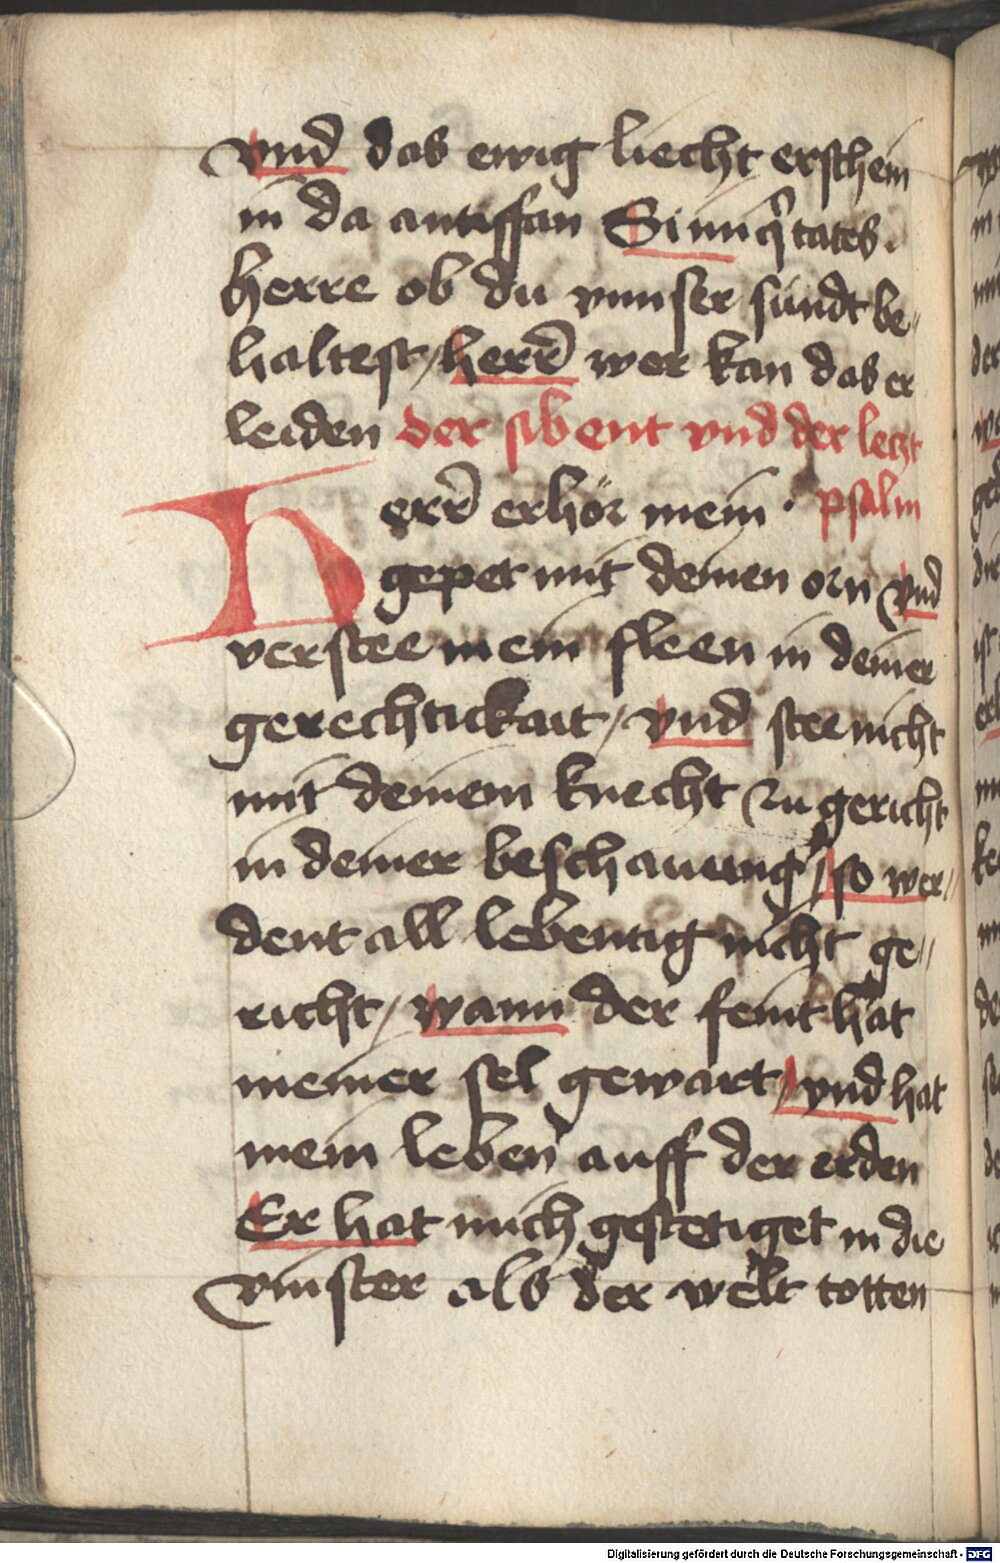 vnd das ewig liecht erschein
in da antiffan Si iniq̃tates.
herre ob du vnnser sündt be„
haltest / herr̃ wer kan das er
leiden der sibent vnd der letzt
psalm
Herr̃ erhör mein ·
gepet mit deinen orn vnd
verstee mein fleen in deiner
gerechtickait / vnd stee nicht
mit deinem knecht zu gericht
in deiner beschauung / so wer„
dent all lebentig nicht ge„
richt / wann der feint hat
meiner sel gewart / vnd hat
mein leben auff der erden
Er hat mich gestetiget in die
vinster als der welt totten
Digitalisierung gefördert durch die Deutsche Forschungsgemeinschaft - DFG